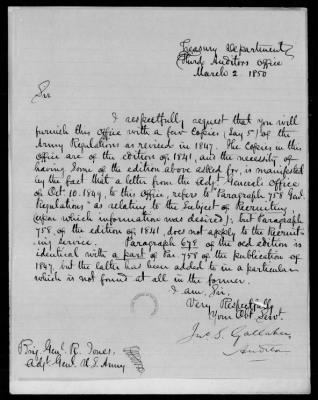 Treasury Department
Third Auditors Office
March 2. 1850
Sir
I respectfully request that you will
furnish this office with a few copies, (say 5) of the
Army Regulations as revised in 1847. The copies in this
office are of the edition of 1841, and the necessity of
having some of the edition above asked for, is manifested
by the fact that a letter from the Adjt. General's Office
of Oct. 10. 1849, to this office, refers to "Paragraph 758 Genl.
Regulations" as relating to the subject of Recruiting
(upon which information was desired); but Paragraph
758, of the edition of 1841, does not apply to the Recruit-
ing service. Paragraph 678 of the old edition is
identical with a part of the 758 of the publication of
1847, but the latter has been added to in a particular
which is not found at all in the former.
I am, Sir,
Very Respectfully
Your Obt. Servt.
Jno. S. Gallaher
Auditor
Brig. Genl. R. Jones,
Adjt. Genl. U.S. Army